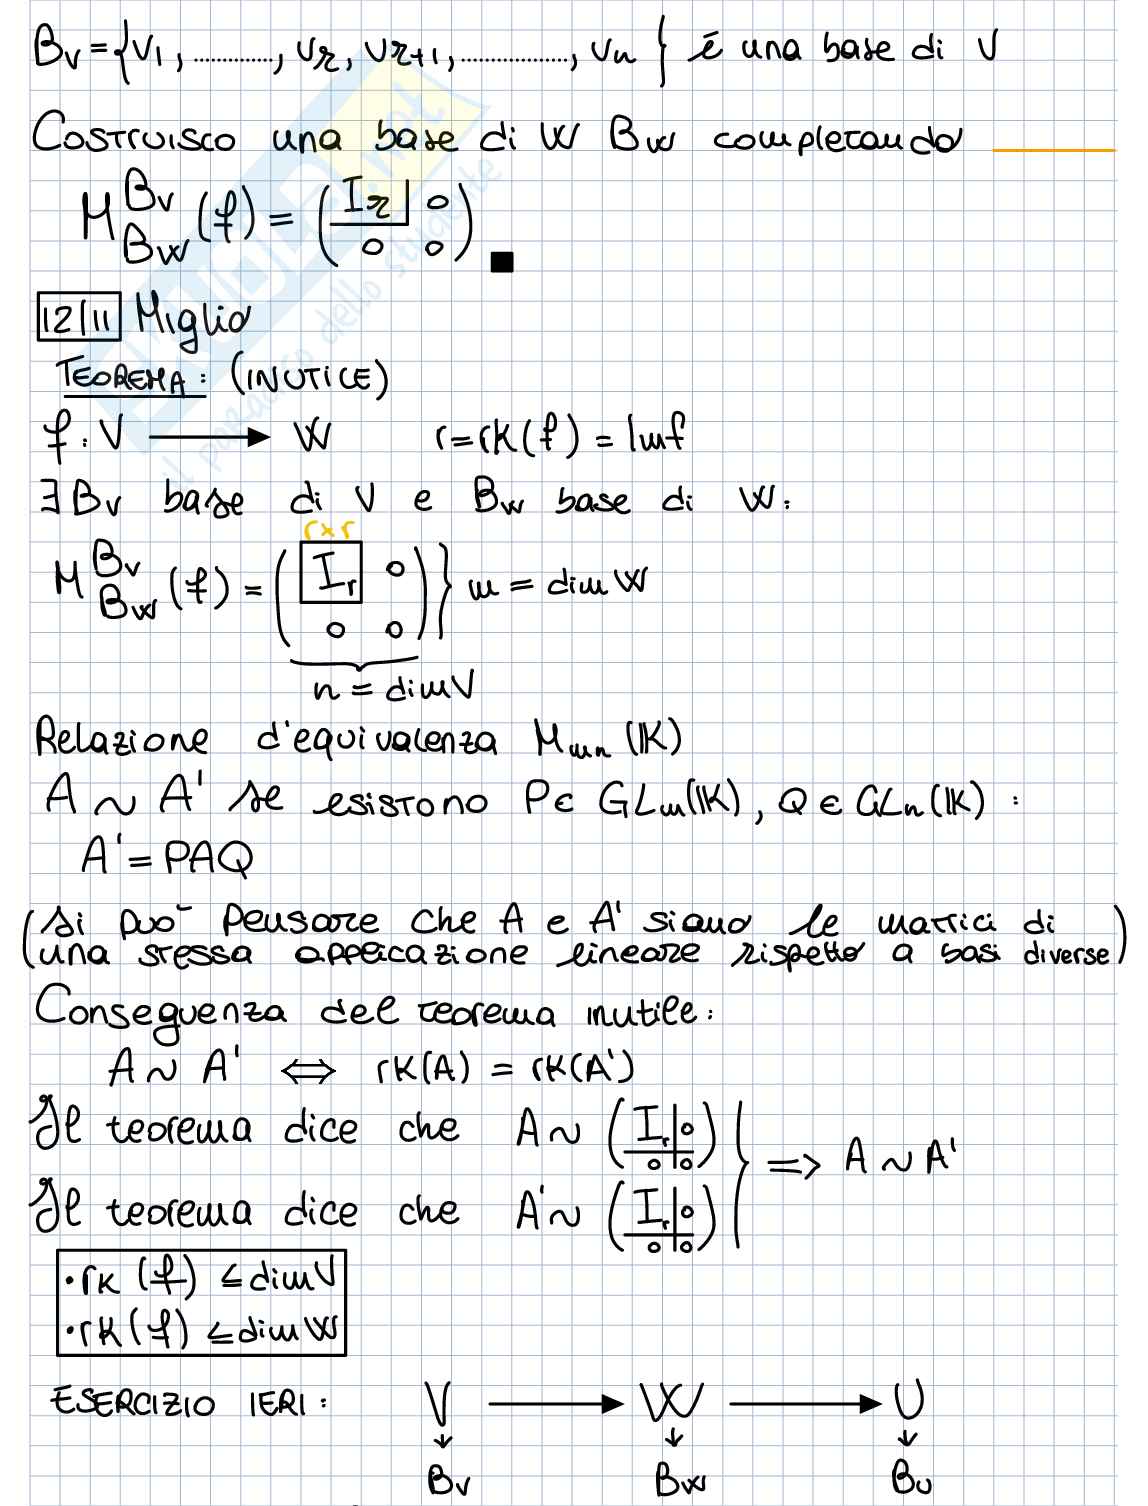 B_V = {v_1, ..........., v_r, v_{r+1}, ..............., v_n} é una base di V
Costruisco una base di W B_W completando
M^{B_V}_{B_W}(f) = (I_r | 0
0 0) ■
12/11 Miglio
TEOREMA: (INUTICE)
f: V ⟶ W r = rk(f) = Imf
∃ B_V base di V e B_W base di W:
r×r
M^{B_V}_{B_W}(f) = (I_r 0
0 0) } m = dim W
n = dim V
Relazione d'equivalenza M_{mn}(𝕂)
A ∼ A' se esistono P ∈ GL_m(𝕂), Q ∈ GL_n(𝕂) :
A' = PAQ
(si può pensare che A e A' siano le matrici di
una stessa applicazione lineare rispetto a basi diverse)
Conseguenza del teorema inutile:
A ∼ A' ⟺ rk(A) = rk(A')
Il teorema dice che A ∼ (I_r | 0
0 | 0)
} ⟹ A ∼ A'
Il teorema dice che A' ∼ (I_r | 0
0 | 0)
• rk (f) ≤ dim V
• rk (f) ≤ dim W
ESERCIZIO IERI: V ⟶ W ⟶ U
↓ ↓ ↓
B_V B_W B_U
il paradiso dello studente